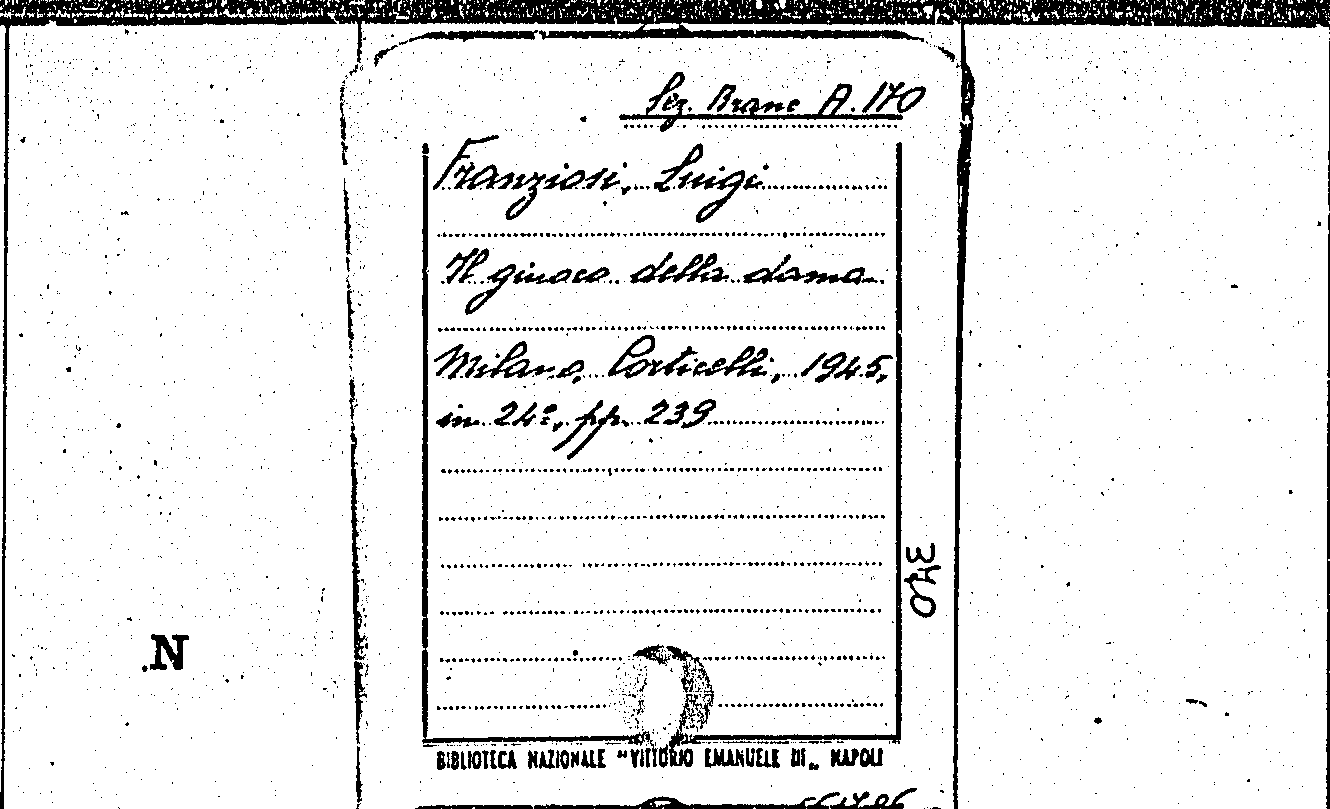 Sez. Branc A. 170
Franziosi, Luigi
Il giuoco della dama
Milano, Corticelli, 1945,
in 24º, pp. 239
340
N
BIBLIOTECA NAZIONALE "VITTORIO EMANUELE III„ NAPOLI